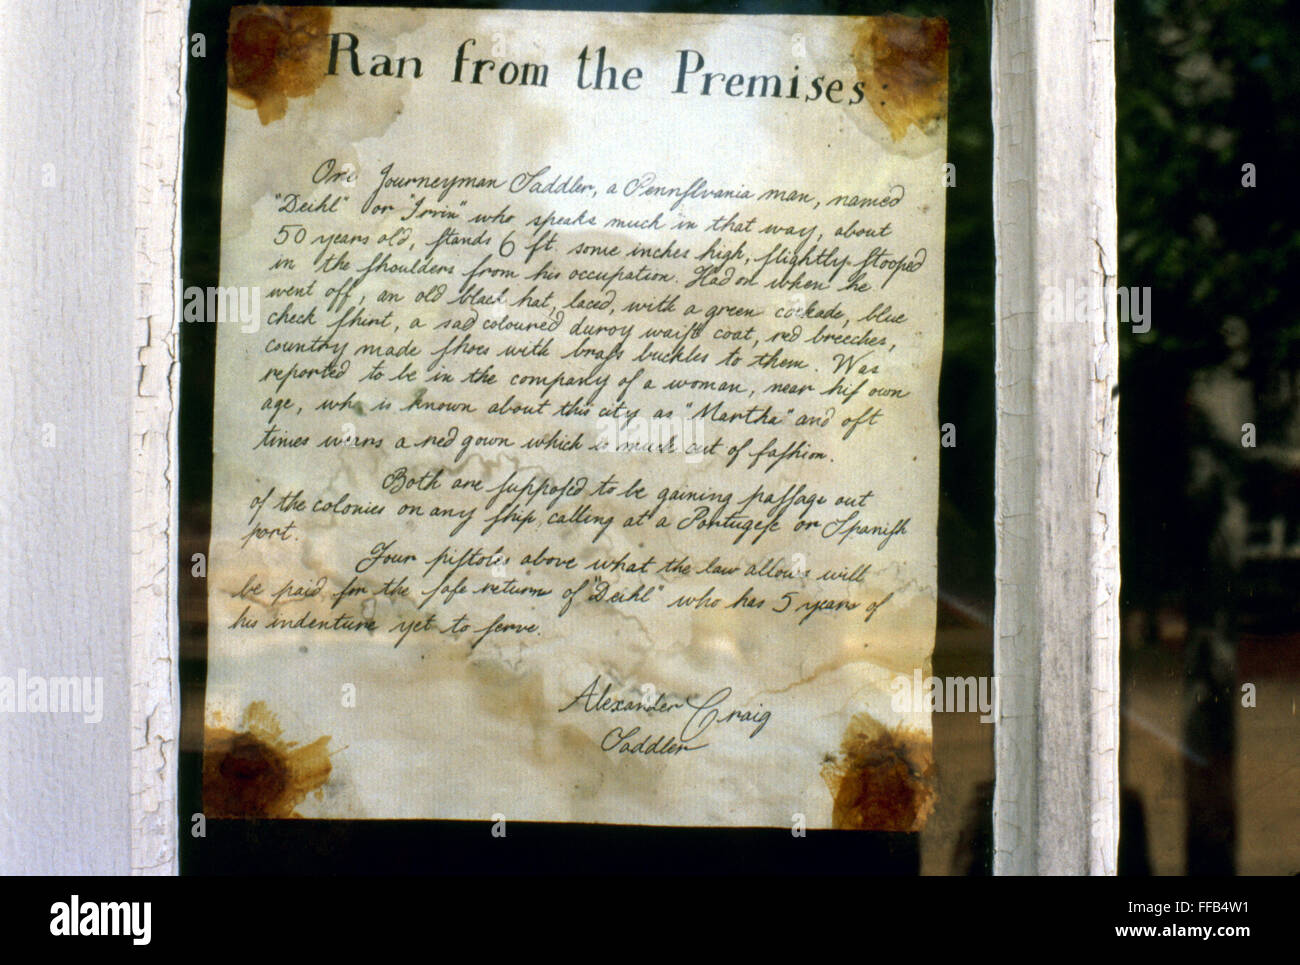 Ran from the Premises
One Journeyman Saddler, a Pennſylvania man, named
"Deihl" or "Irvin" who speaks much in that way, about
50 years old, ſtands 6 ft. some inches high, ſlightly ſtooped
in the ſhoulders from his occupation. Had on when he
went off, an old black hat, laced, with a green cockade, blue
check ſhirt, a sad coloured duroy waiſt coat, red breeches,
country made ſhoes with braſs buckles to them. Was
reported to be in the company of a woman, near hiſ own
age, who is known about this city as "Martha" and oft
times wears a red gown which is much out of faſhion.
Both are ſuppoſed to be gaining paſſage out
of the colonies on any ſhip calling at a Portugeſe or Spaniſh
port.
Four piſtoles above what the law allows will
be paid for the ſafe return of "Deihl" who has 5 years of
his indenture yet to ſerve.
Alexander Craig
Saddler
alamy
Image ID: FFB4W1
www.alamy.com